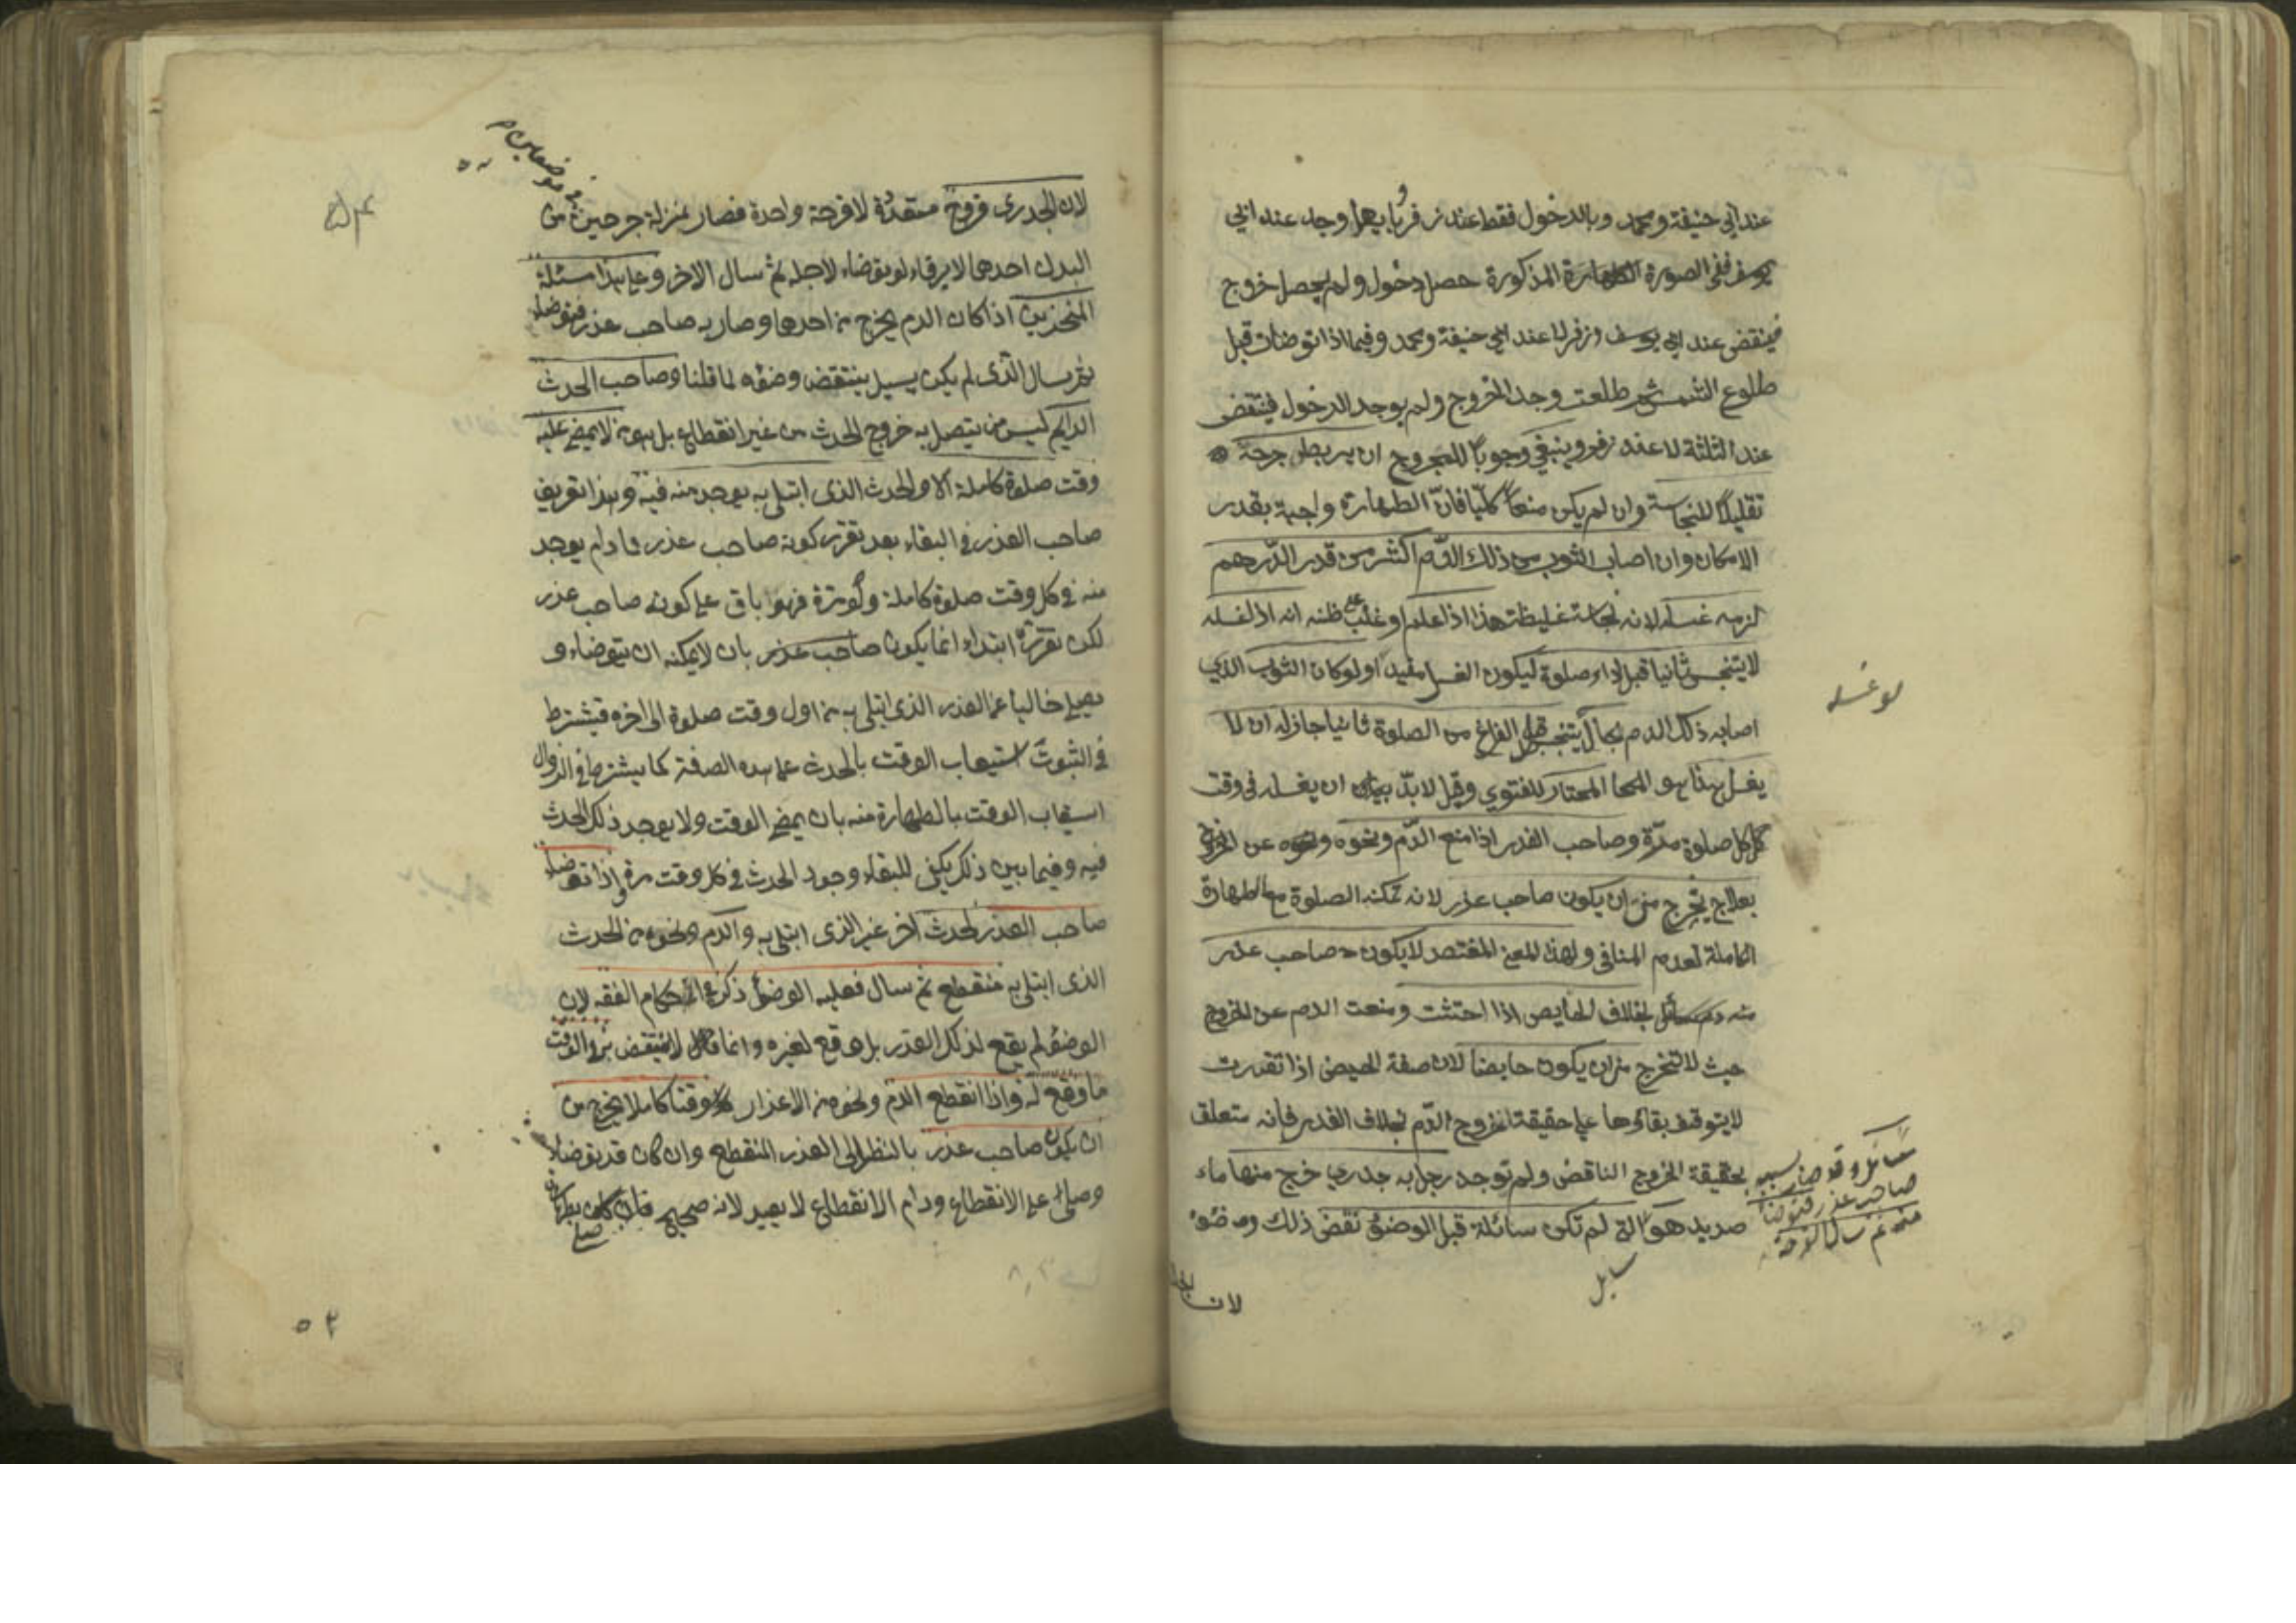 عند ابي حنيفة ومحمد وبالدخول فقط عند زفر وبايهما وجد عند ابي
يوسف ففي الصورة المذكورة حصل دخول ولم يحصل خروج
فينقض عند ابي يوسف وزفر لا عند ابي حنيفة ومحمد وفيما اذا توضأت قبل
طلوع الشمس ثم طلعت وجد الخروج ولم يوجد الدخول فينتقض
عند الثلثة لا عند زفر وينبغي وجوبا للمجروح ان يربط جرحه
تقليلا للنجاسة وان لم يكن منعا كليا فان الطهارة واجبة بقدر
الامكان وان اصاب الثوب من ذلك الدم اكثر من قدر الدرهم
لزمه غسله لانه نجاسة غليظة هذا اذا علم او غلب على ظنه انه اذا غسله
لا يتنجس ثانيا قبل اداء صلوة ليكون الغسل مفيدا ولو كان الثوب الذي
اصابه ذلك الدم بحال يتنجس قبل الفراغ من الصلوة ثانيا جاز له ان لا
يغسل هذا هو المختار للفتوي وقيل لا بد ان يغسله في وقت
كل صلوة مرة وصاحب العذر اذا منع الدم ونحوه عن الخروج
بعلاج يخرج من ان يكون صاحب عذر لانه تمكنه الصلوة مع الطهارة
الكاملة لعدم المنافي ولهذا المعني المفتصد لا يكون صاحب عذر
بخلاف الحايض اذا احتشت ومنعت الدم عن الخروج
حيث لا تخرج من ان يكون حايضا لان صفة الحيض اذا تقررت
لا يتوقف بقاؤها علي حقيقة الخروج الدم بخلاف العذر فانه متعلق
بحقيقة الخروج الناقض ولم توجد رجل به جدري خرج منها ماء
صديد هو التي لم تكن سائلة قبل الوضوء نقض ذلك وضوؤه
لو غسله
سائل وقد صار بسببه
صاحب عذر فتوضأ
منه ثم سال القرحة
سايل
لان الجد
لان الجدري قروح متعددة لا قرحة واحدة فصار بمنزلة جرحين من
في موضعين
البدن احدهما لا يرقاء لو توضاء لاجله ثم سال الاخر وعلي هذا مسئلة
المنخرين اذا كان الدم يخرج من احدهما وصار به صاحب عذر فتوضاء
ثم سال الذي لم يكن يسيل ينتقض وضوءه لما قلنا وصاحب الحدث
الدايم ليس من يتصل به خروج الحدث من غير انقطاع بل هو من لا يمضي عليه
وقت صلوة كاملة الا والحدث الذي ابتلي به يوجد منه فيه وهذا تعريف
صاحب العذر في البقاء بعد تقرر كونه صاحب عذر فما دام يوجد
منه في كل وقت صلوة كاملة ولو مرة فهو باق علي كونه صاحب عذر
لكن تقرره ابتداء انما يكون صاحب عذر بان لا يمكنه ان يتوضاء و
يصلي خاليا عن العذر الذي ابتلي به من اول وقت صلوة الى اخره فيشترط
في الثبوت استيعاب الوقت بالحدث علي هذه الصفة كما يشترط في الزوال
استيعاب الوقت بالطهارة منه بان يمضي الوقت ولا يوجد ذلك الحدث
فيه وفيما بين ذلك يكفي للبقاء وجود الحدث في كل وقت مرة واذا توضاء
صاحب العذر لحدث آخر غير الذي ابتلي به والدم ونحوه من الحدث
الذي ابتلي به منقطع ثم سال فعليه الوضوء ذكره في احكام الفقه لان
الوضوء لم يقع لذلك العذر بل وقع لغيره وانما لا ينتقض الوقت
ما وقع له واذا انقطع الدم ونحوه من الاعذار وقتا كاملا يخرج من
ان يكون صاحب عذر بالنظر الى العذر المنقطع وان كان قد توضاء
وصلى علي الانقطاع ودام الانقطاع لا يعيد لانه صحيح
٥٢